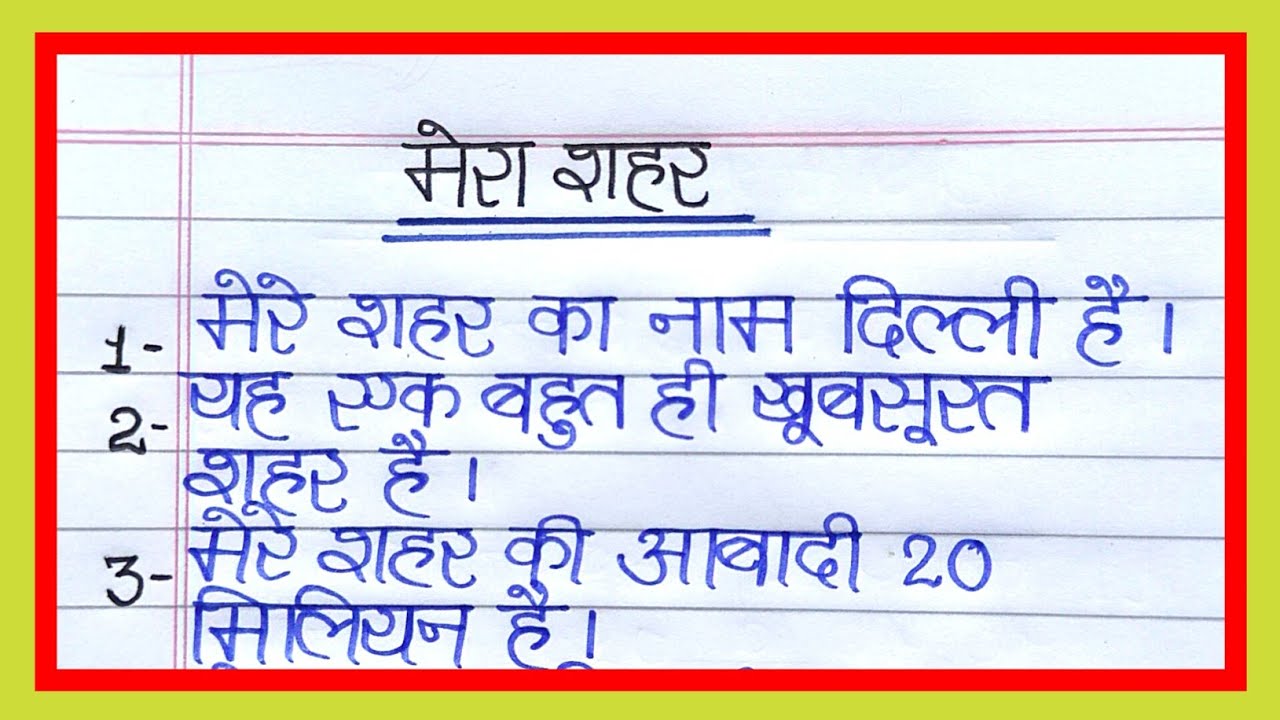 मेरा शहर
1- मेरे शहर का नाम दिल्ली है।
2- यह एक बहुत ही खूबसूरत
शहर है।
3- मेरे शहर की आबादी 20
मिलियन है।